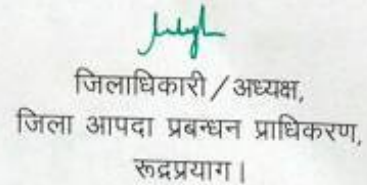 जिलाधिकारी / अध्यक्ष,
जिला आपदा प्रबन्धन प्राधिकरण,
रूद्रप्रयाग।